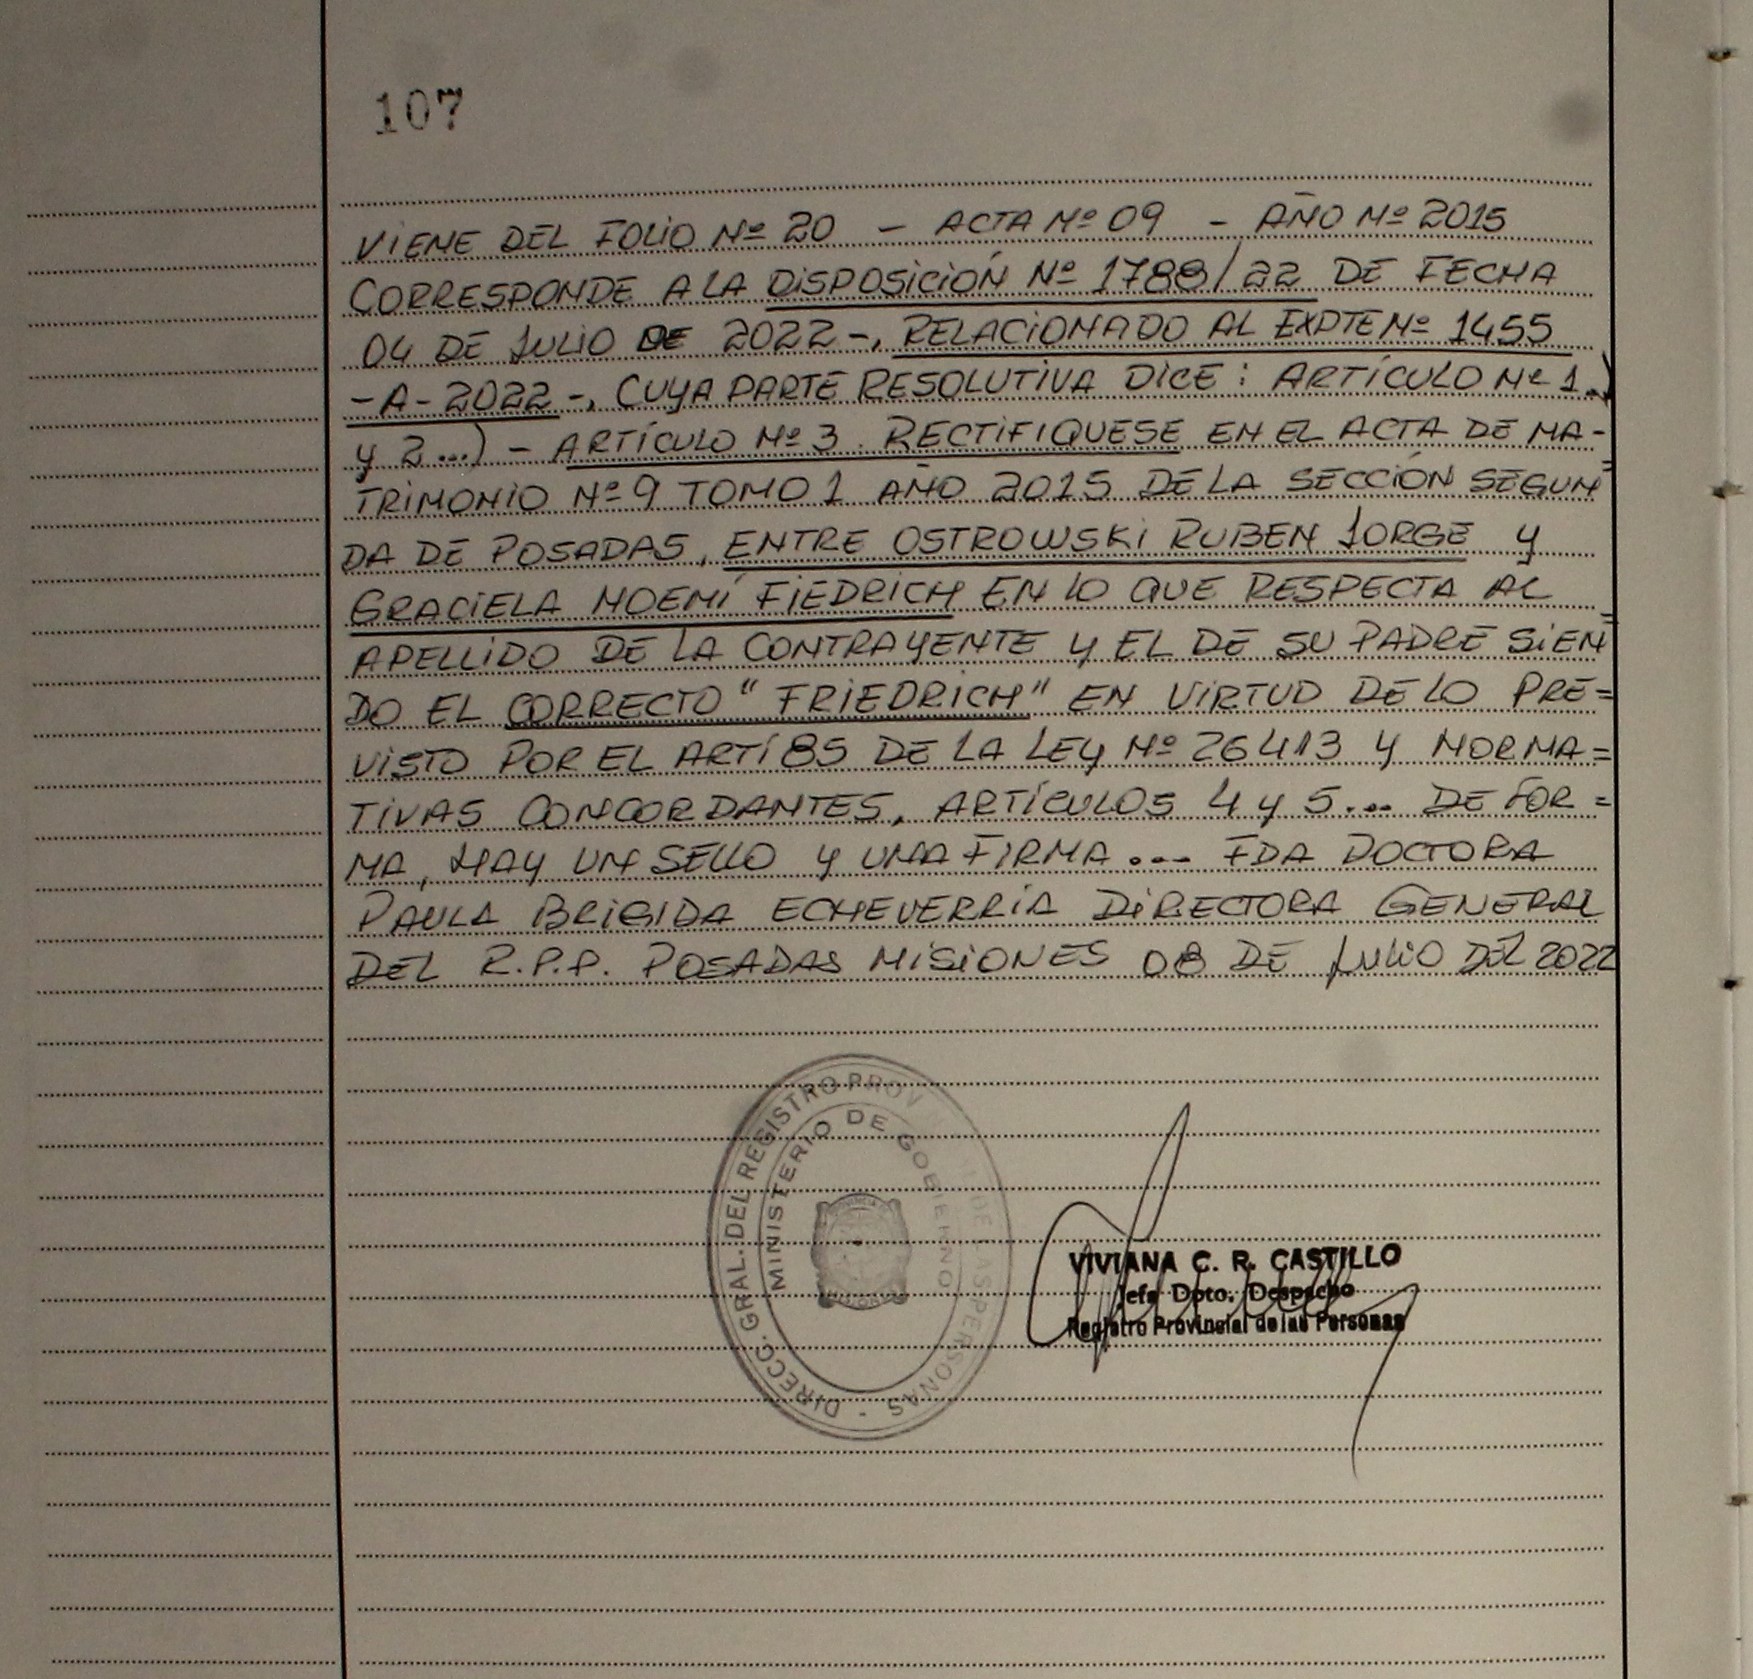 107
VIENE DEL FOLIO Nº 20 - ACTA Nº 09 - AÑO Nº 2015
CORRESPONDE A LA DISPOSICIÓN Nº 1788/22 DE FECHA
04 DE JULIO DE 2022-, RELACIONADO AL EXPTE Nº 1455
-A-2022-, CUYA PARTE RESOLUTIVA DICE: ARTÍCULO Nº 1.)
y 2...) - ARTÍCULO Nº 3. RECTIFIQUESE EN EL ACTA DE MA-
TRIMONIO Nº 9 TOMO 1 AÑO 2015 DE LA SECCIÓN SEGUN=
DA DE POSADAS, ENTRE OSTROWSKI RUBEN JORGE y
GRACIELA NOEMÍ FIEDRICH EN LO QUE RESPECTA AL
APELLIDO DE LA CONTRAYENTE y EL DE SU PADRE SIEN=
DO EL CORRECTO "FRIEDRICH" EN VIRTUD DE LO PRE=
VISTO POR EL ARTÍ 85 DE LA LEY Nº 26413 Y NORMA=
TIVAS CONCORDANTES, ARTÍCULOS 4 y 5... DE FOR=
MA, HAY UN SELLO y UNA FIRMA... FDA DOCTORA
PAULA BRIGIDA ECHEVERRÍA DIRECTORA GENERAL
DEL R.P.P. POSADAS MISIONES 08 DE JULIO DEL 2022
DIRECC. GRAL. DEL REGISTRO PROV DE LAS PERSONAS -
MINISTERIO DE GOBIERNO
VIVIANA C. R. CASTILLO
Jefe Dpto. Despacho
Registro Provincial de las Personas